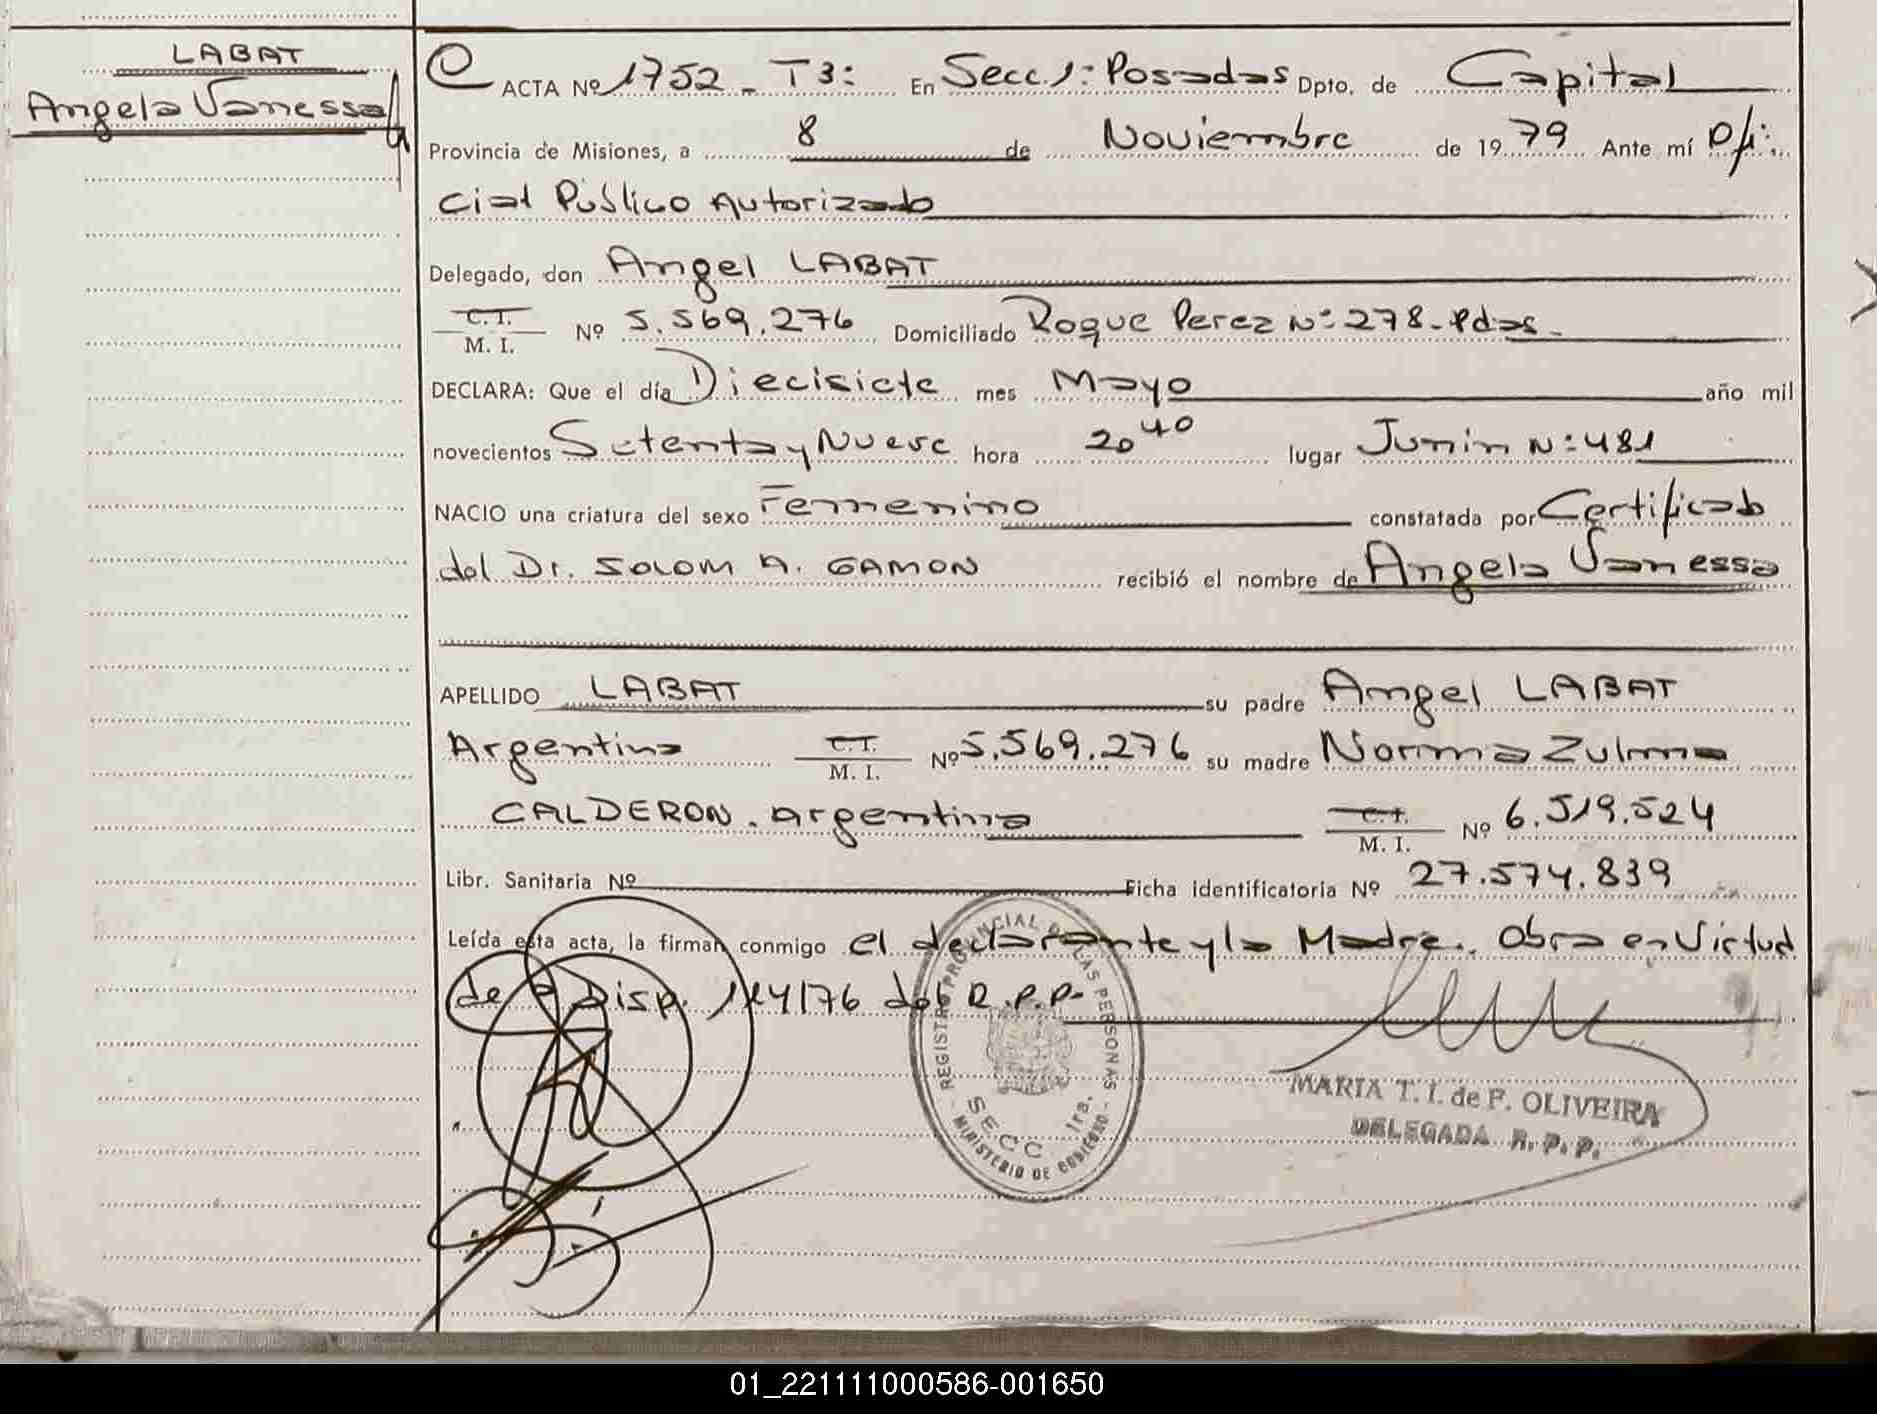 LABAT
Angela Vanessa
ACTA Nº 1752 - T3: En Secc. 1: Posadas Dpto. de Capital
Provincia de Misiones, a 8 de Noviembre de 1979 Ante mí Ofi:
cial Público Autorizado
Delegado, don Angel LABAT
C.I.
M. I. Nº 5.569.276 Domiciliado Roque Perez Nº: 278 - Pdas -
DECLARA: Que el día Diecisiete mes Mayo año mil
novecientos Setenta y Nueve hora 20 40 lugar Junin Nº: 481
NACIO una criatura del sexo Femenino constatada por Certificado
del Dr. SOLOM A. GAMON recibió el nombre de Angela Vanessa
APELLIDO LABAT su padre Angel LABAT
Argentino C.I.
M. I. Nº 5.569.276 su madre Norma Zulma
CALDERON. argentina C.I.
M. I. Nº 6.519.524
Libr. Sanitaria Nº Ficha identificatoria Nº 27.574.839
Leída esta acta, la firman conmigo el declarante y la Madre. Obra en Virtud
de Disp. 114/76 del R.P.P.-
REGISTRO PROVINCIAL DE LAS PERSONAS
SECC 1ra.
- MINISTERIO DE GOBIERNO -
MARIA T. I. de F. OLIVEIRA
DELEGADA R. P. P.
01_221111000586-001650